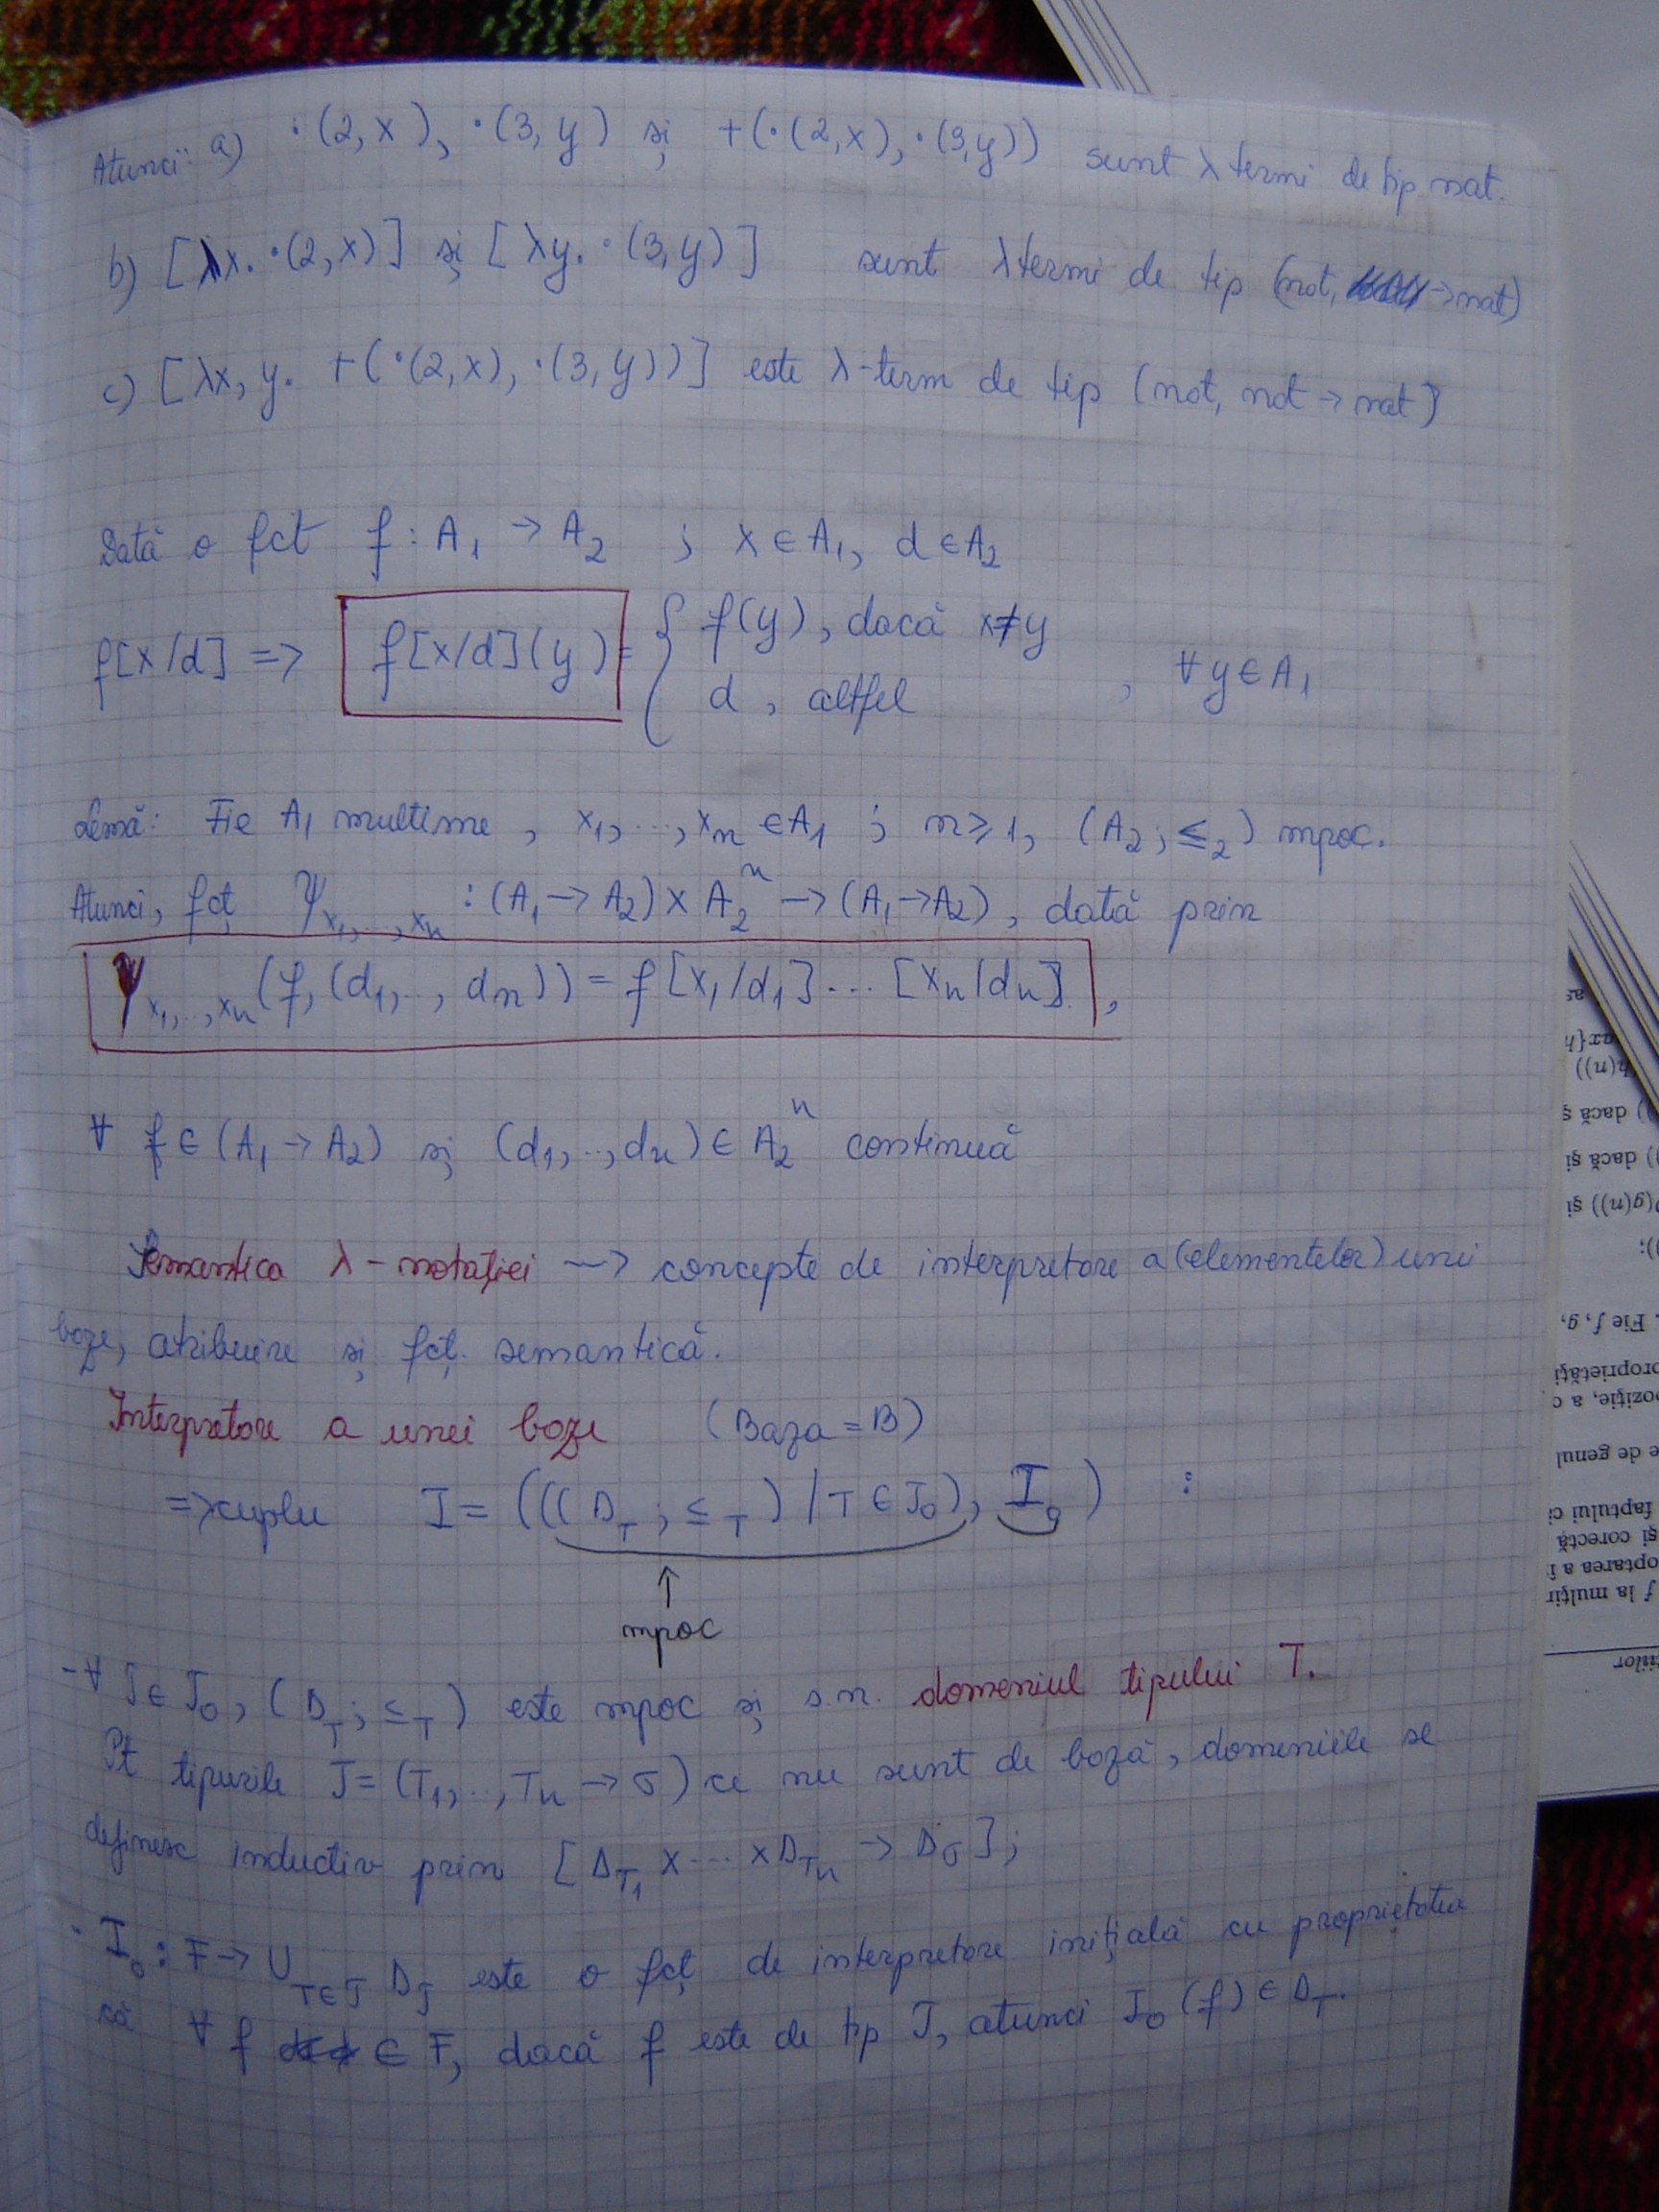 Atunci: a) ·(2, x), ·(3, y) și +(·(2, x), ·(3, y)) sunt λ termi de tip nat.
b) [λx. ·(2, x)] și [λy. ·(3, y)] sunt λ termi de tip (nat, → nat)
c) [λx, y. +(·(2, x), ·(3, y))] este λ-term de tip (nat, nat → nat)
Dată o fct f : A₁ → A₂ ; x ∈ A₁, d ∈ A₂
f[x/d] => f[x/d](y) = { f(y), dacă x≠y
d, altfel , ∀ y ∈ A₁
Lemă: Fie A₁ multime, x₁,...,xₙ ∈ A₁ ; n ≥ 1, (A₂ ; ≤₂) mpoc.
Atunci, fcț ψ_{x₁,..,xₙ} : (A₁ → A₂) × A₂ⁿ → (A₁ → A₂), dată prin
ψ_{x₁,..,xₙ}(f, (d₁,.., dₙ)) = f[x₁/d₁]...[xₙ/dₙ],
∀ f ∈ (A₁ → A₂) și (d₁,..,dₙ) ∈ A₂ⁿ continuă
Semantica λ-notației ⇝ concepte de interpretare a (elementelor) unei
baze, atribuire și fcț. semantică.
Interpretare a unei baze (Baza = B)
=> cuplu I = (((D_T ; ≤_T) / T ∈ T₀), I₀) :
↑
mpoc
- ∀ T ∈ T₀, (D_T ; ≤_T) este mpoc și s.n. domeniul tipului T.
Pt tipurile T = (T₁,.., Tₙ → σ) ce nu sunt de bază, domeniile se
definesc inductiv prin [D_{T₁} × ... × D_{Tₙ} → D_σ];
· I₀ : F → ∪_{T∈T} D_T este o fcț de interpretare inițială cu proprietatea
că ∀ f ∈ F, dacă f este de tip T, atunci I₀(f) ∈ D_T.
as
ax{h
h(n))
) dacă ș
) dacă și
(g(n)) și
):
. Fie f, g,
proprietăți
oziție, a c
e de genul
faptului că
și corectă
optarea a f
f la mulțir